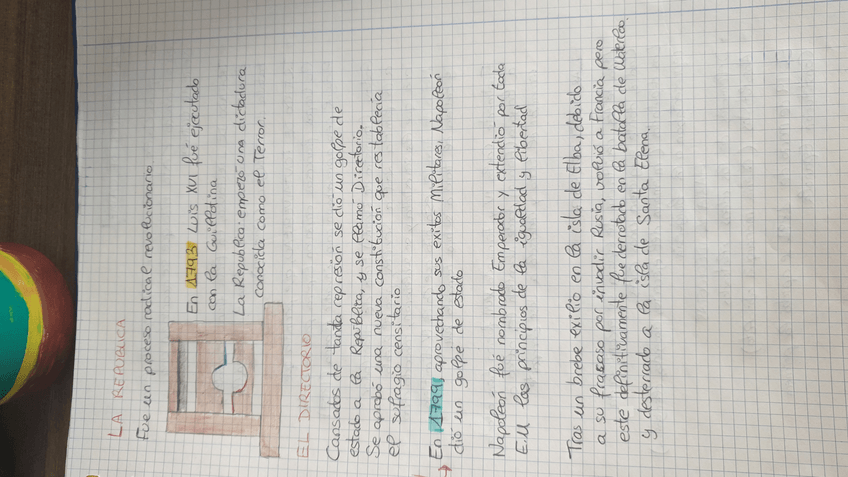 LA REPUBLICA
Fue un proceso radical revolucionario
En 1793 Luis XVI fué ejecutado
con la Guillotina
La Republica empezó una dictadura
conocida como el Terror.
EL DIRECTORIO
Cansados de tanta represion se dió un golpe de
estado a la República, y se llamó Directorio.
Se aprobó una nueva constitución que restablecia
el sufragio censitario
→ En 1799, aprovechando sus exitos Militares, Napoleón
dió un golpe de estado
Napoleón fué nombrado Emperador y extendió por toda
E.U las principios de la igualdad y libertad
Tras un brebe exilio en la isla de Elba, debido
a su fracaso por invadir Rusia, volvió a Francia pero
este definitivamente fue derrotado en la batalla de Waterloo
y desterrado a la isla de Santa Elena.